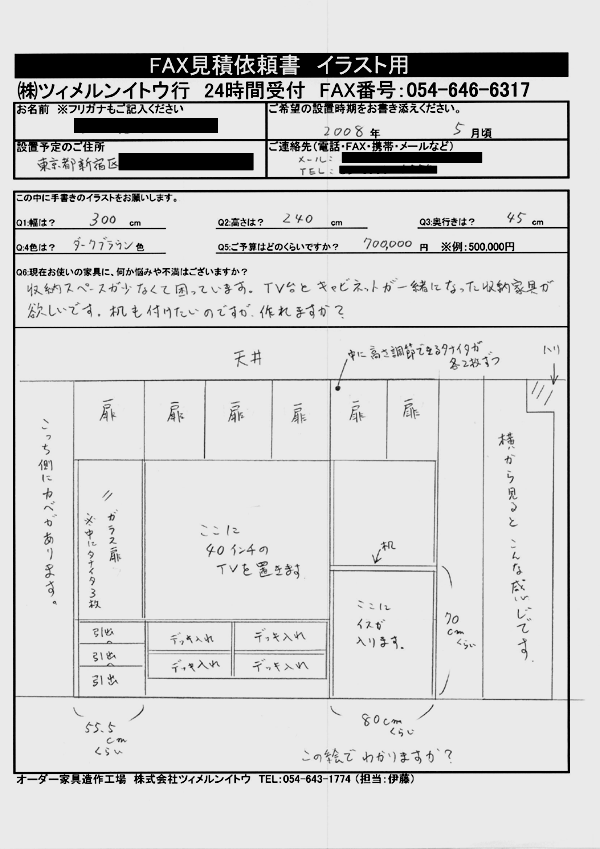 FAX見積依頼書 イラスト用
㈱ツィメルンイトウ行 24時間受付 FAX番号:054-646-6317
お名前 ※フリガナもご記入ください
ご希望の設置時期をお書き添えください。
2008年 5月頃
設置予定のご住所
東京都新宿区
ご連絡先(電話・FAX・携帯・メールなど)
メール:
TEL:
この中に手書きのイラストをお願いします。
Q1:幅は? 300 cm
Q2:高さは? 240 cm
Q3:奥行きは? 45 cm
Q4:色は? ダークブラウン色
Q5:ご予算はどのくらいですか? 700,000 円 ※例:500,000円
Q6:現在お使いの家具に、何か悩みや不満はございますか?
収納スペースが少なくて困っています。TV台とキャビネットが一緒になった収納家具が
欲しいです。机も付けたいのですが、作れますか?
天井
中に高さ調節できるタナイタが
各2枚ずつ
ハリ
扉 扉 扉 扉 扉 扉
こっち側にカベがあります。
ガラス扉
※中にタナイタ3枚
ここに
40インチの
TVを置きます
机
横から見るとこんな感じです。
ここに
イスが
入ります。
70
cm
くらい
引出
引出
引出
デッキ入れ デッキ入れ
デッキ入れ デッキ入れ
55.5
cm
くらい
80cm
くらい
この絵でわかりますか?
オーダー家具造作工場 株式会社ツィメルンイトウ TEL:054-643-1774 (担当:伊藤)